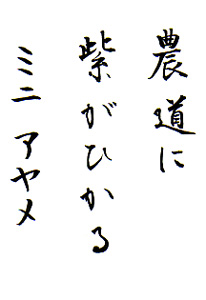 農道に
紫がひかる
ミニアヤメ